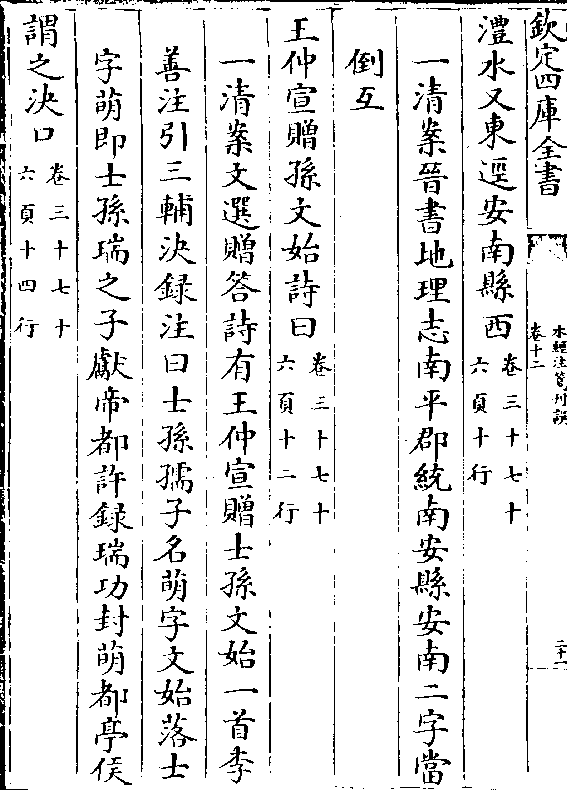 欽定四庫全書
水經注箋刊誤
卷十二
澧水又東逕安南縣西卷三十七十
六頁十行
一清案晉書地理志南平郡統南安縣安南二字當
倒互
王仲宣贈孫文始詩曰卷三十七十
六頁十二行
一清案文選贈答詩有王仲宣贈士孫文始一首李
善注引三輔決録注曰士孫孺子名萌字文始落士
字萌即士孫瑞之子獻帝都許録瑞功封萌都亭侯
謂之決口卷三十七十
六頁十四行